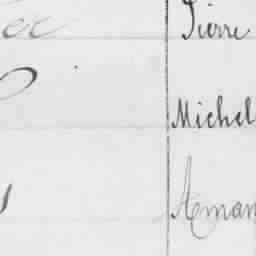 Pierre
Michel
Aman